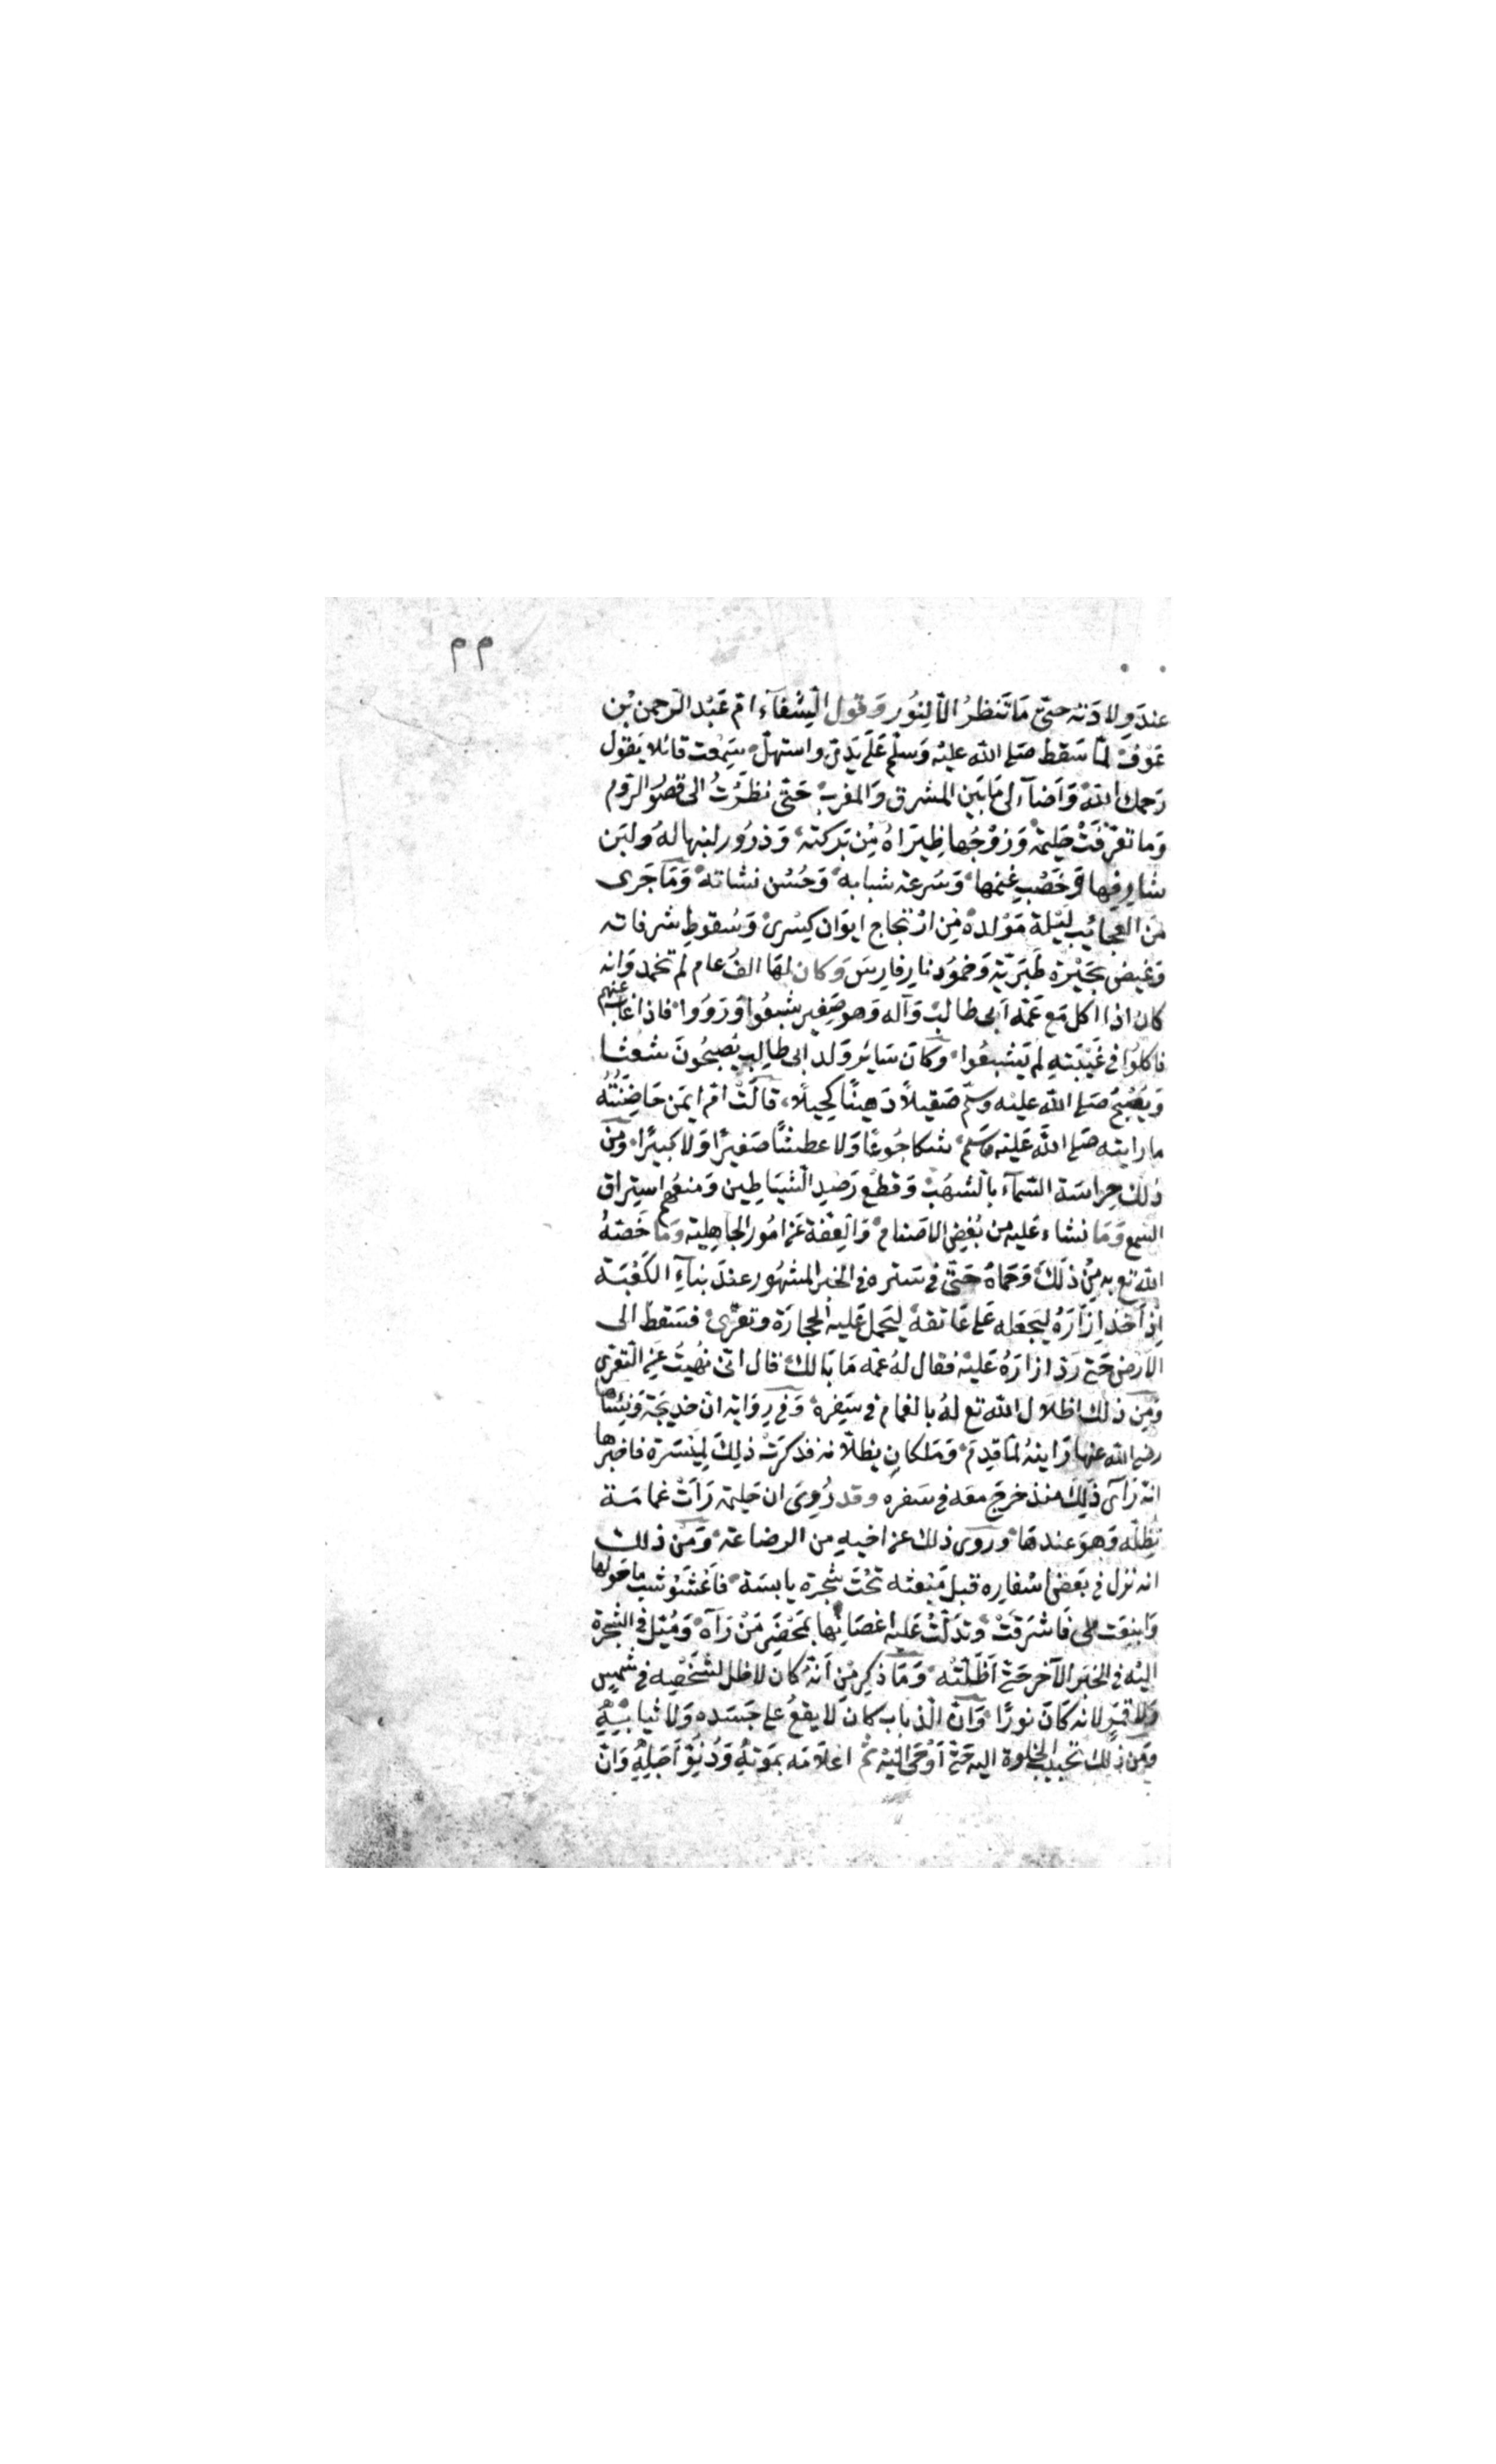 م م
عِندَ وِلادَته حتى مَا تَنظرُ الا النُور وَقول الشِّفَآء ام عَبْد الرّحمن بْن
عَوفْ لمَّا سَقطَ صَلى الله عليْه وَسَلّم عَلَى يَدَىّ واستهلّ سَمِعت قائلا يَقول
رَحمك الله وَاَضآء لى مَا بَين المشرق وَالمغرب حَتى نظَرْتُ الى قصُور الروم
وَما تعَرّفَتْ حَليمَة وَزوْجُها ظِئرَاهُ مِنْ بَرَكته وَدُرُور لبنها لهُ وَلبَن
شارفِها وَخصْب غنمها وَسُرعَة شبابه وَحُسْن نشاته وَمَا جَرى
مَن العجائب لَيْلة مَوْلده مِن ارْتجاج ايوَان كِسْرى وَسُقوط شرفاته
وَغيض بحَيْرة طَبَريّة وَخمُود نار فارِسَ وَكان لهَا الفُ عام لم تخمد وَانه
كان اذا اكل مَع عَمّه اَبى طالب وَآله وَهو صَغِير شبعُوا وَرَوَوا فاذا غاب عنهم
فاكلوُا فى غَيْبَتهِ لم يَشْبعُوا وَكانَ سَائر وَلد ابى طالب يُصبحُونَ شعثا
وَيصْبحُ صَلى الله عليْه وَسلّم صَقيلاً دَهينًا كحيلًا قالَتْ ام ايمَن حَاضِنَتُه
ما رايته صَلى الله عَليْه وَسَلم شكا جُوعًا وَلا عطشًا صَغيرًا وَلا كبيرًا وَمن
ذلك حِرَاسَة السَّمآء بالشهُبْ وَقطْع رَصَدِ الشيَاطِين وَمنعُهم استِراق
السّمع وَمَا نشاء عَليه من بُغْضِ الاصنام وَالعِفّة عَن امُور الجاهلية وَمَا خَصّهُ
الله تع به مِنْ ذلك وَحَمَاهُ حَتى فى سَتره فى الخبر المشهُور عندَ بنآءِ الكَعْبَة
اِذ اَخذ اِزارَهُ ليَجْعَله عَلى عَاتقه ليَحمل عَليه الحِجارَة وتعَرّى فسَقط الى
الارض حَتى رَد ازارَهُ عَليْه فقال لهُ عمّه مَا بَالك قال انى نُهيتُ عَن التعَرى
وَمِن ذلك اظلال الله تع لهُ بالغمام فى سَفره وَفى رِوَايَة ان خديجَة وَنِسَاها
رضى الله عنها رَاينهُ لمّا قدِمَ وَمَلكان يظلاّنه فذكَرَتْ ذلِكَ لِمَيْسَرة فاخبرها
انهُ رَآى ذلِك منذ خرَجَ معَه فى سَفره وقد رُوِىَ ان حَليمَة رَاَتْ غمامَة
تظِلّه وَهوَ عندهَا وَروى ذلك عن اخيهِ من الرضاعَة وَمن ذلك
انه نَزل فى بَعض اسْفاره قبل مَبْعثه تحْتَ شجرَة يابسَة فاَعْشَوْشبَ ما حَولها
وَاينعَت هى فَاشرَقتْ وتدَلتْ عَليه اغصَانهَا بمَحْضَرِ مَنْ رَآه وَمَيْل فىء الشجَرة
اليْه فى الخبَر الآخَر حَتى اَظَلتْه وَمَا ذكِر مِنْ اَنهُ كان لاظل لشَخْصِه فى شمسٍ
وَلا قمَرٍ لانه كَانَ نورًا وَانّ الذبَاب كانَ لا يقعُ عَلى جَسَده وَلا ثيابهِ
وَمن ذلك تحبيب الخلوَة اليه حَتى اَوْحى اليْه ثم اعلاَمَه بمَوْته وَدُنوّ اَجَلِهِ وَانّ